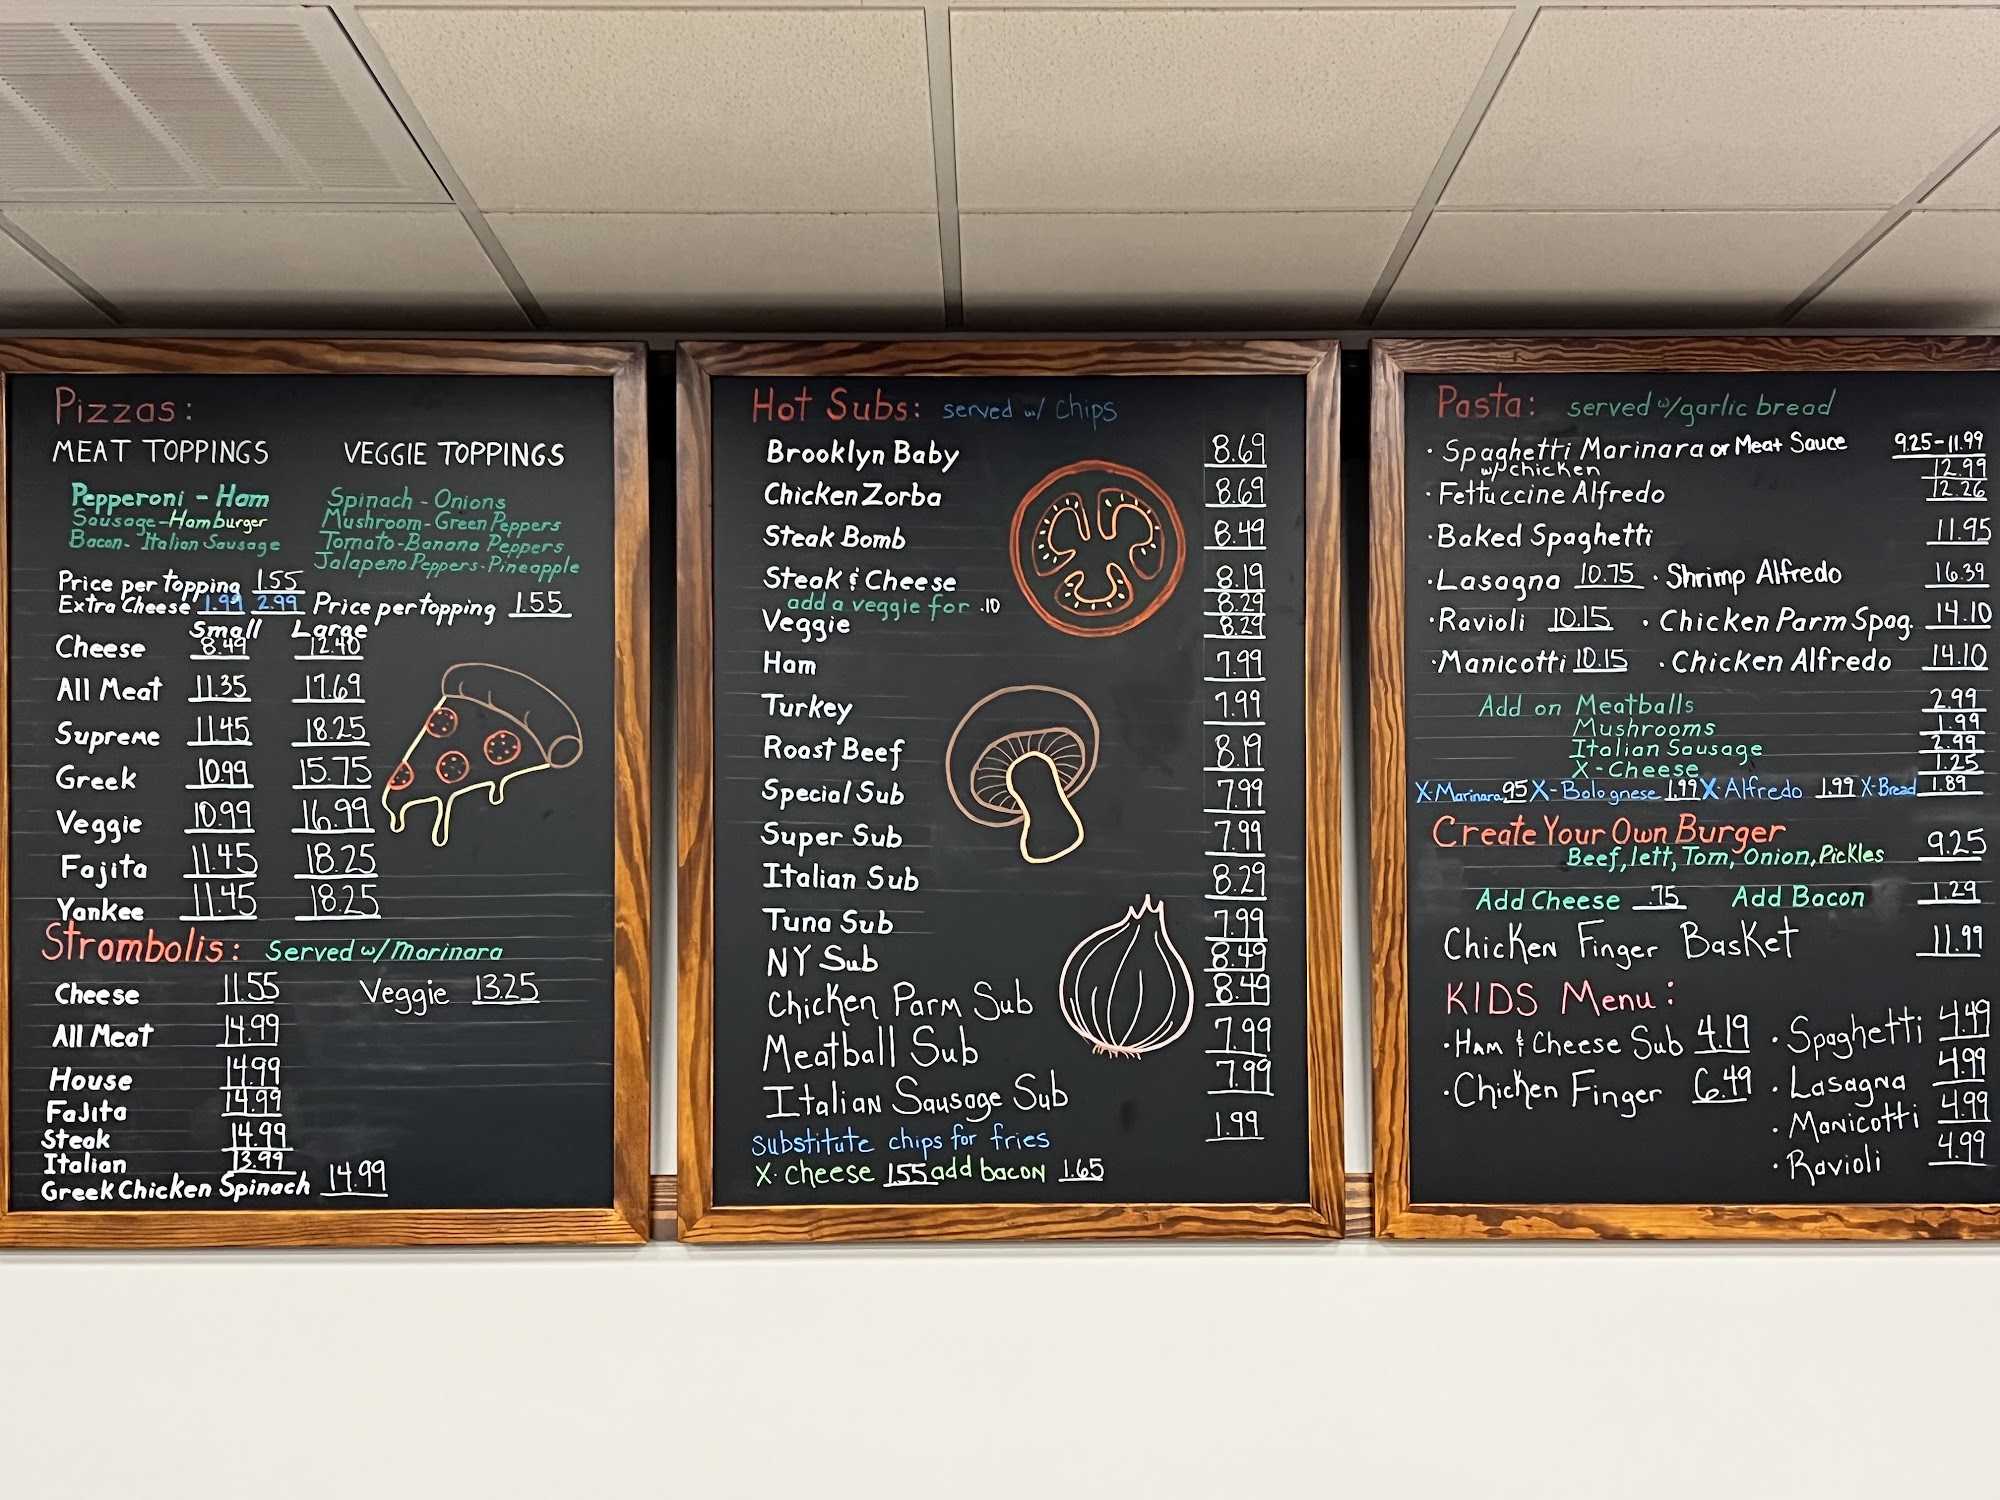 Pizzas:
MEAT TOPPINGS VEGGIE TOPPINGS
Pepperoni - Ham Spinach - Onions
Sausage-Hamburger Mushroom-Green Peppers
Bacon- Italian Sausage Tomato-Banana Peppers
Jalapeno Peppers-Pineapple
Price per topping 1.55
Extra Cheese 1.99 2.99 Price per topping 1.55
Small Large
Cheese 8.49 12.40
All Meat 11.35 17.69
Supreme 11.45 18.25
Greek 10.99 15.75
Veggie 10.99 16.99
Fajita 11.45 18.25
Yankee 11.45 18.25
Strombolis: Served w/ Marinara
Cheese 11.55 Veggie 13.25
All Meat 14.99
House 14.99
Fajita 14.99
Steak 14.99
Italian 13.99
Greek Chicken Spinach 14.99
Hot Subs: served w/ chips
Brooklyn Baby 8.69
Chicken Zorba 8.69
Steak Bomb 8.49
Steak & Cheese 8.19
add a veggie for .10 8.29
Veggie 8.29
Ham 7.99
Turkey 7.99
Roast Beef 8.19
Special Sub 7.99
Super Sub 7.99
Italian Sub 8.29
Tuna Sub 7.99
NY Sub 8.49
Chicken Parm Sub 8.49
Meatball Sub 7.99
Italian Sausage Sub 7.99
substitute chips for fries 1.99
X-cheese 1.55 add bacon 1.65
Pasta: served w/garlic bread
· Spaghetti Marinara or Meat Sauce 9.25-11.99
w/ chicken 12.99
· Fettuccine Alfredo 12.26
· Baked Spaghetti 11.95
· Lasagna 10.75 · Shrimp Alfredo 16.39
· Ravioli 10.15 · Chicken Parm Spag. 14.10
· Manicotti 10.15 · Chicken Alfredo 14.10
Add on Meatballs 2.99
Mushrooms 1.99
Italian Sausage 2.99
X-Cheese 1.25
X-Marinara .95 X-Bolognese 1.99 X-Alfredo 1.99 X-Bread 1.89
Create Your Own Burger 9.25
Beef, lett, Tom, Onion, Pickles
Add Cheese .75 Add Bacon 1.29
Chicken Finger Basket 11.99
KIDS Menu:
· Ham & Cheese Sub 4.19 · Spaghetti 4.49
· Chicken Finger 6.49 · Lasagna 4.99
· Manicotti 4.99
· Ravioli 4.99